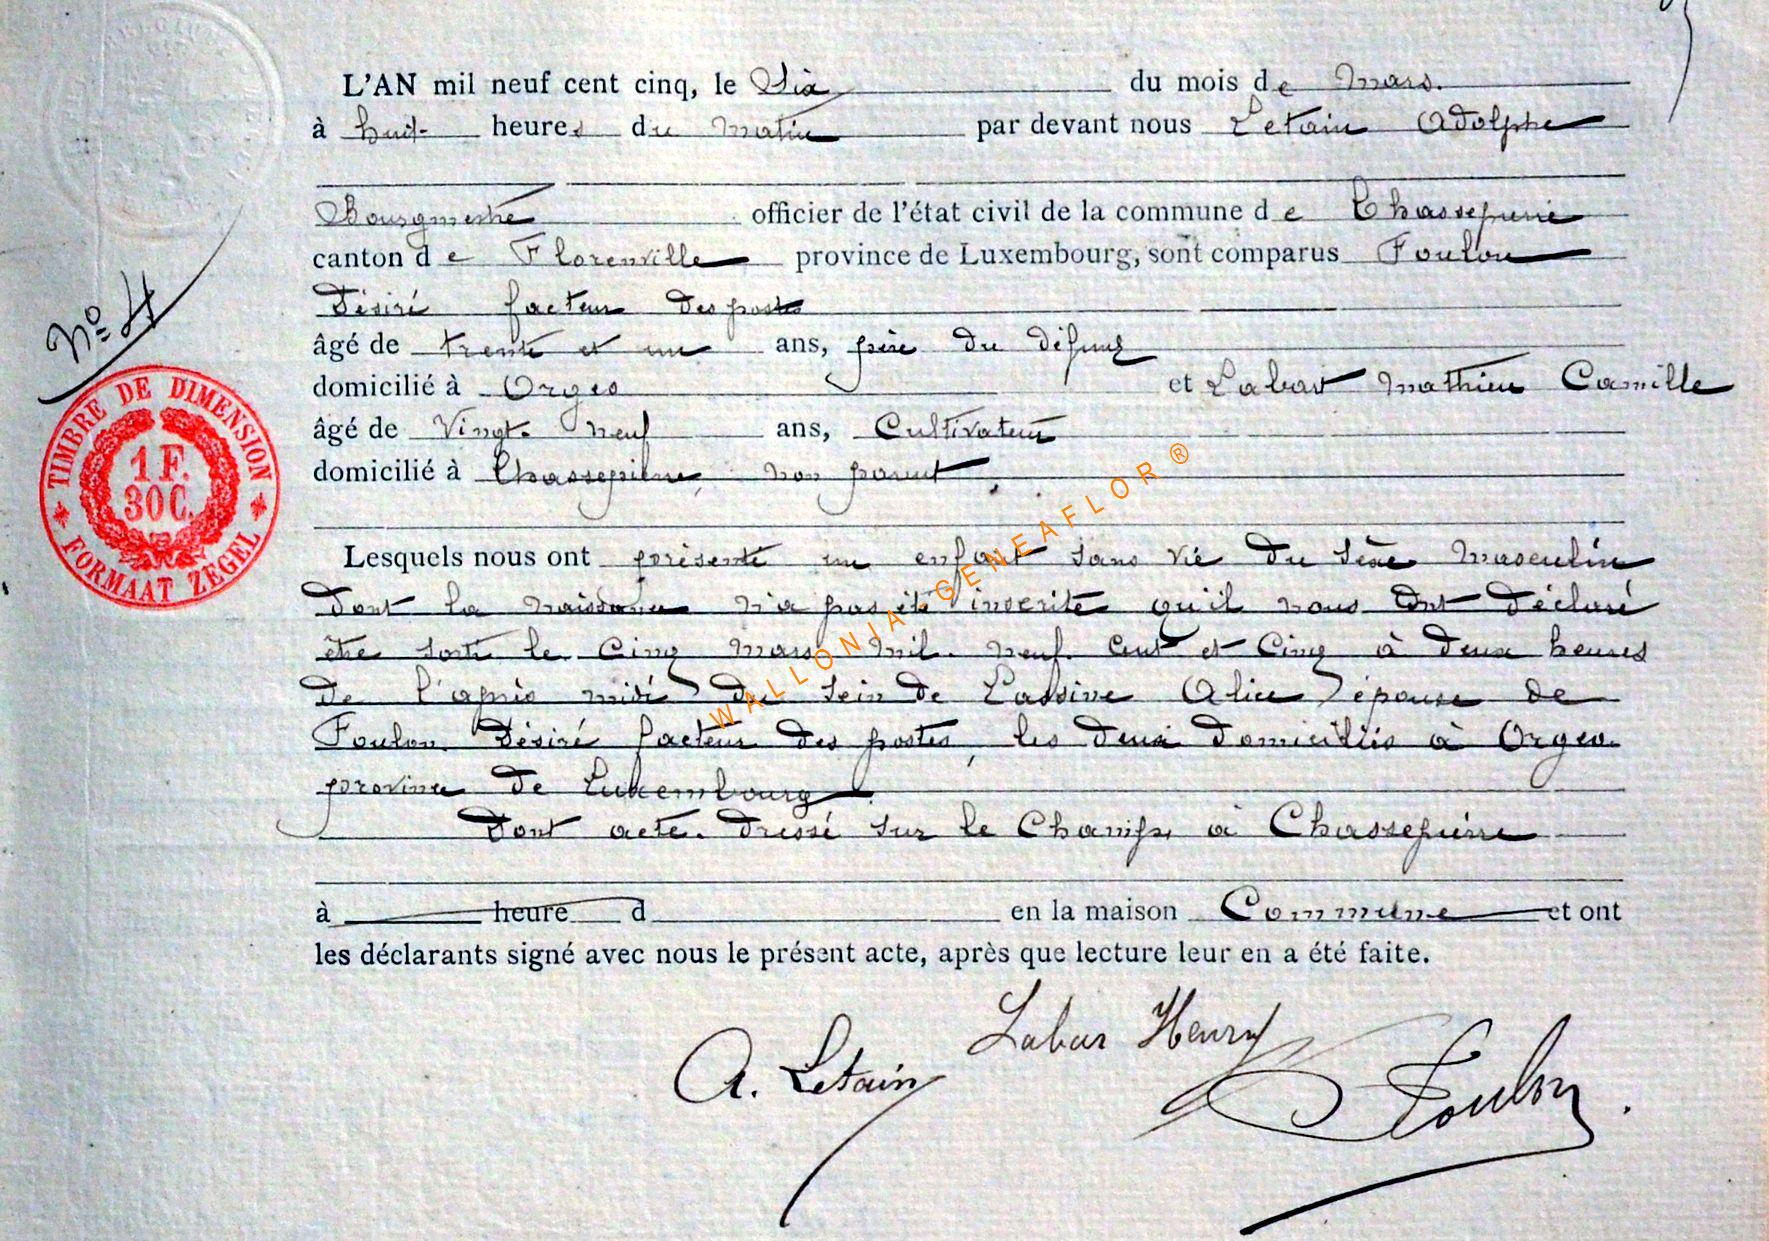 L'AN mil neuf cent cinq, le Six du mois de Mars.
à huit heures du Matin par devant nous Letain Adolphe
Bourgmestre officier de l'état civil de la commune de Chassepierre
canton de Florenville province de Luxembourg, sont comparus Foulon
Désiré facteur des postes
âgé de trente et un ans, père du défunt
domicilié à Orgeo et Labar Mathieu Camille
âgé de Vingt-neuf ans, Cultivateur
domicilié à Chassepierre, non parent,
Lesquels nous ont présenté un enfant sans vie du sexe Masculin
dont la naissance n'a pas été inscrite qu'il nous ont déclaré
être sorti le Cinq Mars Mil-neuf-Cent et Cinq à deux heures
de l'après midi du sein de Lassine Alice épouse de
Foulon Désiré facteur des postes, les deux domiciliés à Orgeo
province de Luxembourg.
Dont acte. Dressé sur le Champ, à Chassepierre
à heure d en la maison Commune et ont
les déclarants signé avec nous le présent acte, après que lecture leur en a été faite.
A. Letain Labar Henry Foulon.
No 4
TIMBRE DE DIMENSION
1 F.
30 C.
FORMAAT ZEGEL
WALLONIA GENEAFLOR ®